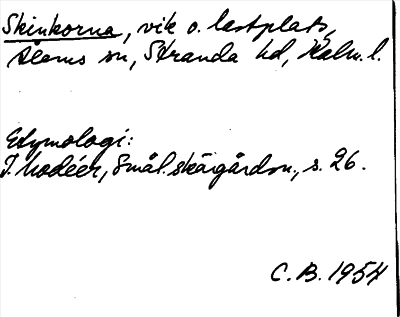 Skinkorna, vik o. lastplats,
Ålems sn, Stranda hd, Kalm. l.
Etymologi:
I. Modéer, Smål. skärgårdsn., s. 26.
C. B. 1954